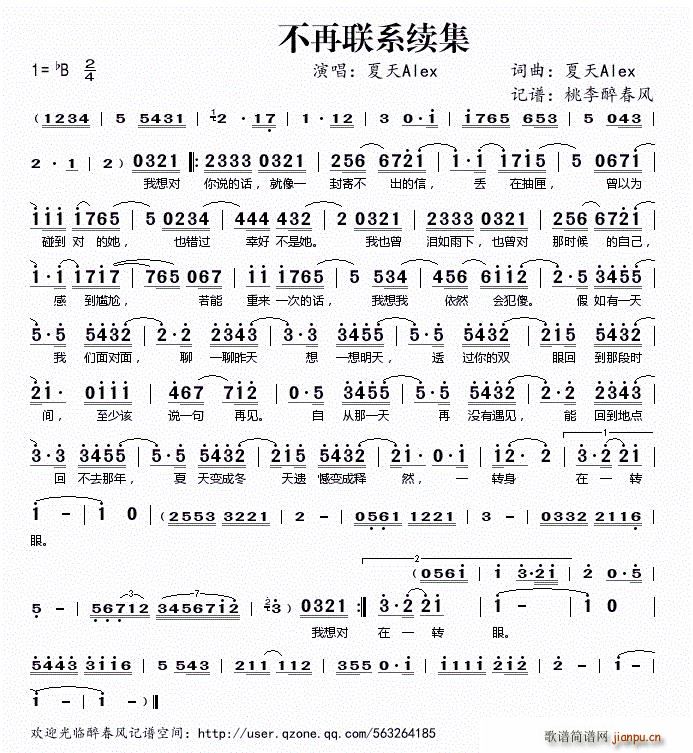 不再联系续集
1=♭B 2/4 演唱：夏天Alex 词曲：夏天Alex
记谱：桃李醉春风
(1234 | 5 5431 | 2 · 17 | 1 · 12 | 3 0 · i | i765 653 | 5 043 |
2 · 1 | 2) 0321 ‖: 2333 0321 | 256 6721 | i · i i715 | 5 0671 |
我想对 你说的话，就像一 封寄不 出的信，丢 在抽匣，曾以为
iii i765 | 5 0234 | 444 432 | 2 0321 | 2333 0321 | 256 6721 |
碰到对 的她，也错过 幸好 不是她。我也曾 泪如雨下，也曾对 那时候 的自己，
i · i i717 | 765 067 | ii i765 | 5 534 | 456 6112 | 2 · 5 3455 |
感 到尴尬，若能 重来 一次的话，我想我 依然 会犯傻。假 如有一天
5 · 5 5432 | 2 · 2 2343 | 3 · 3 3455 | 5 · 5 5432 | 215 5432 |
我 们面对面，聊 一聊昨天 想 一想明天，透 过你的双 眼回 到那段时
21 · 0111 | 467 712 | 0 · 5 3455 | 5 · 5 5432 | 2 · 2 2343 |
间，至少该 说一句 再见。自 从那一天 再 没有遇见，能 回到地点
3 · 3 3455 | 5 · 5 5432 | 215 5432 | 21 · 0 · 1 | 12 · 2 | 3 · 2 21 |
回 不去那年，夏 天变成冬 天遗 憾变成释 然，一 转身 在 一 转
i － | i 0 | (2553 3221 | 2 － | 0561 1221 | 3 － | 0332 2116 |
眼。
(0561 | i 3·21 | 2 0 · 5 |
5 － | 56712 3456712 | 3) 0321 :‖ 3 · 2 21 | i － | i 0 |
我想对 在 一 转 眼。
5443 3116 | 5 543 | 211 112 | 355 0 · i | i111 2161 | 5 · 5 5432 |
i － | i － )‖
欢迎光临醉春风记谱空间：http://user.qzone.qq.com/563264185
歌谱简谱网
jianpu.cn